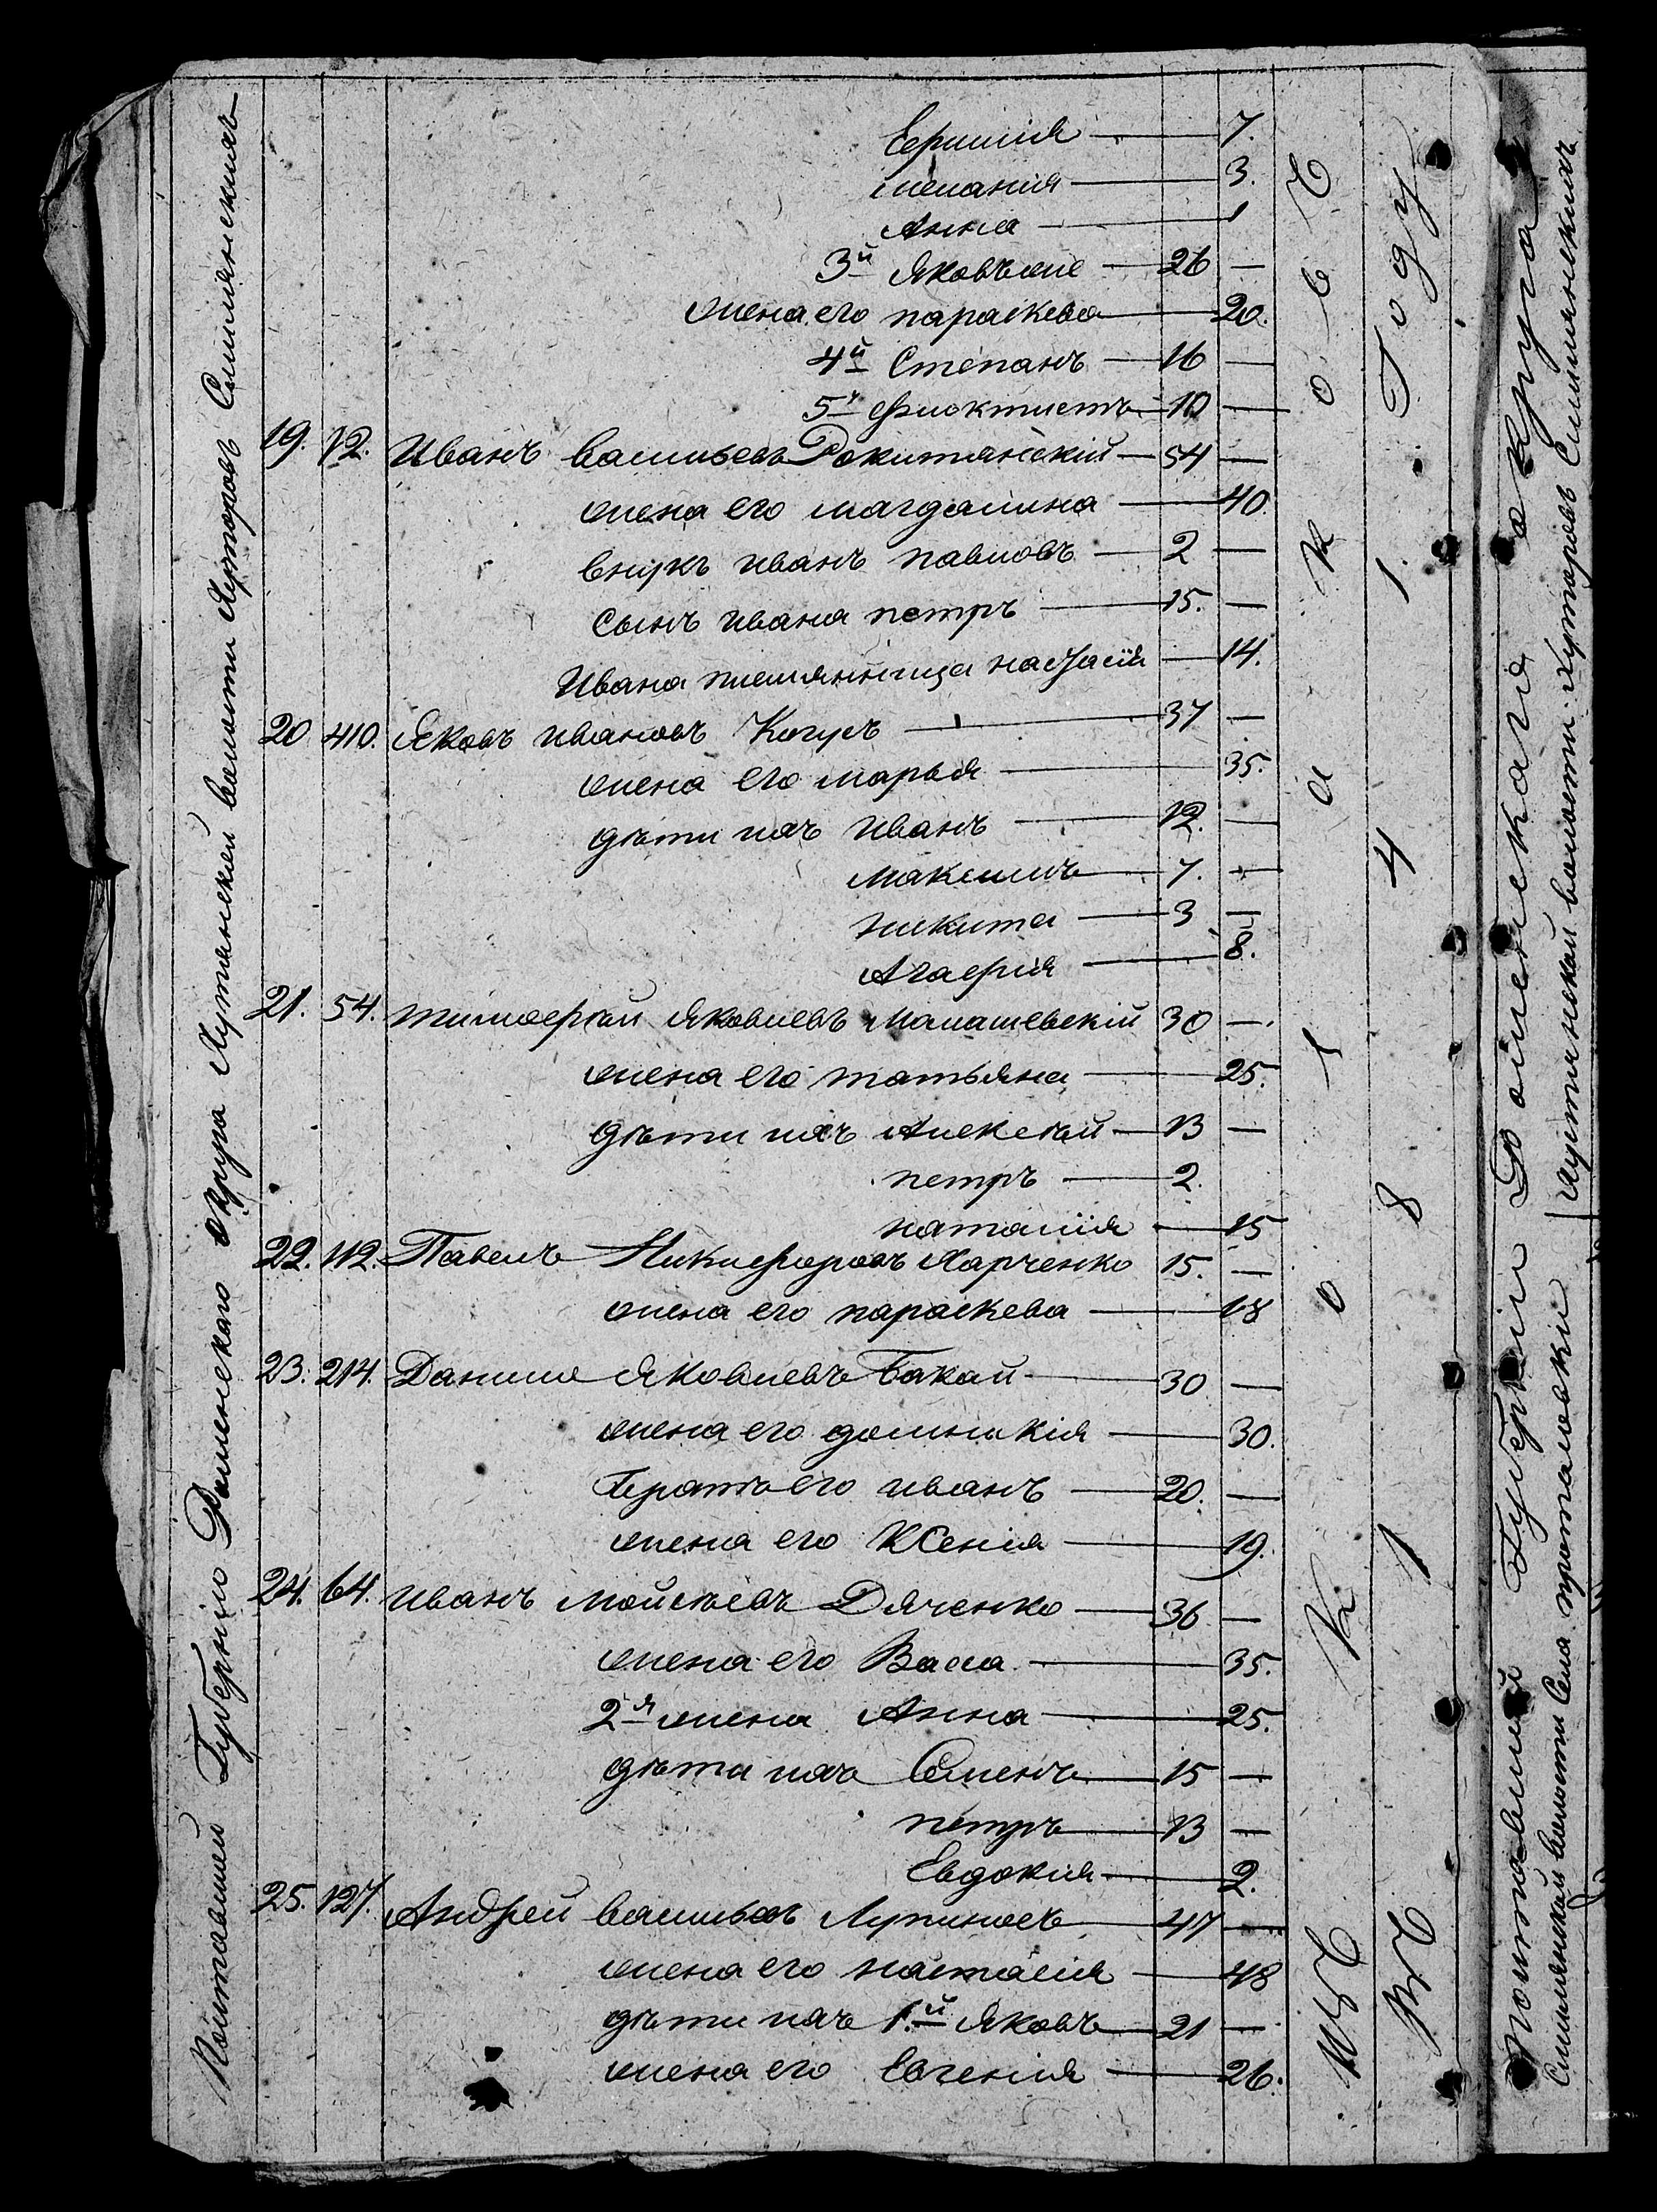 Полтавской Губерніи Роменскаго округа Лутчанской волости Хуторовъ Смилянскихъ
Ефимія — 7.
меланія — 3.
Анна — 1
3й Яковъ — 26 —
жена его параскева — 20.
4й Степанъ — 16 —
5й Феоктистъ — 10 —
19. 12. Иванъ васильевъ Рокитянскій — 54 —
жена его магдалина — 40.
внукъ иванъ павловъ — 2 —
сынъ ивана петръ — 15. —
Ивана племянница настасія — 14.
20 410. Яковъ ивановъ — 37 —
жена его марья — 35.
дѣти ихъ иванъ — 12. —
максимъ — 7. —
никита — 3 —
Агафія — 8.
21. 54. тимофѣй Яковлевъ Малашевскій 30 —
жена его татьяна — 25.
дѣти ихъ Алексѣй — 13 —
петръ — 2.
наталія — 15
22. 112. Павелъ Никифоровъ Харченко 15. —
жена его параскева — 18
23. 214. Данило Яковлевъ Бакай — 30 —
жена его домникія — 30.
Братъ его иванъ — 20. —
жена его Ксенія — 19.
24. 64. иванъ мойсѣевъ Дяченко — 36 —
жена его Васса — 35.
2я жена Анна — 25.
дѣти ихъ Семенъ — 15 —
петръ — 13 —
Евдокія — 2.
25. 127. Андрей васильевъ — 47 —
жена его настасія — 48
дѣти ихъ 1й Яковъ — 21 —
жена его Евгенія — 26.
Изъ Козаковъ
Въ 1841 Году
Полтавской Губерніи Роменскаго округа
Смилянской волости Села протасовки